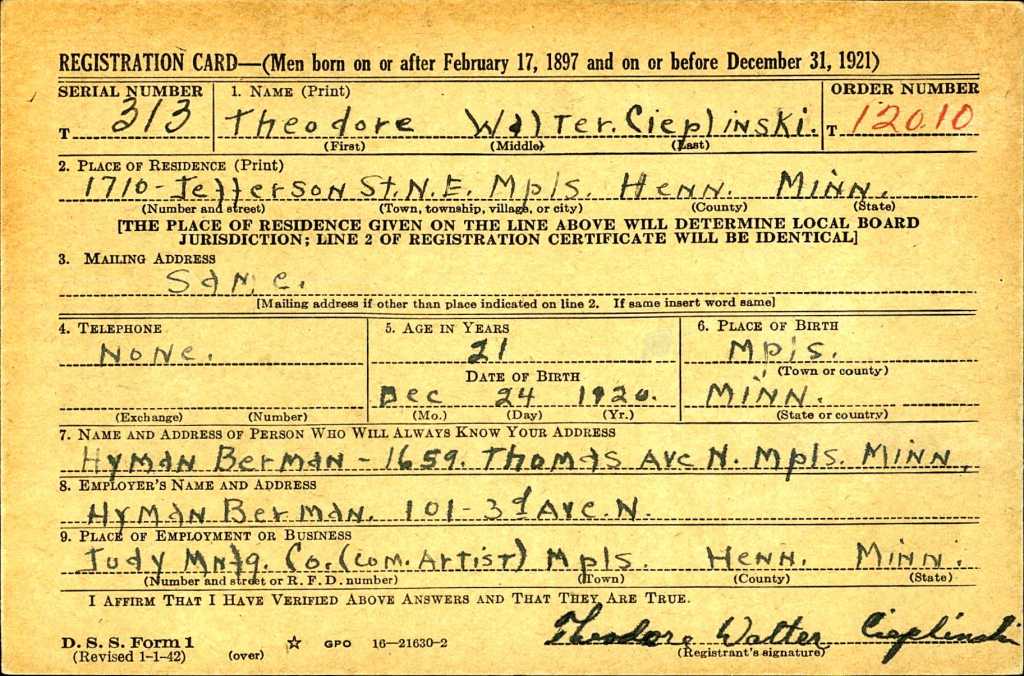 REGISTRATION CARD—(Men born on or after February 17, 1897 and on or before December 31, 1921)
SERIAL NUMBER 1. NAME (Print) ORDER NUMBER
T 313 Theodore Walter. Cieplinski. T 12010
(First) (Middle) (Last)
2. PLACE OF RESIDENCE (Print)
1710-Jefferson St. N.E. Mpls. Henn. Minn.
(Number and street) (Town, township, village, or city) (County) (State)
[THE PLACE OF RESIDENCE GIVEN ON THE LINE ABOVE WILL DETERMINE LOCAL BOARD
JURISDICTION; LINE 2 OF REGISTRATION CERTIFICATE WILL BE IDENTICAL]
3. MAILING ADDRESS
Same.
[Mailing address if other than place indicated on line 2. If same insert word same]
4. TELEPHONE 5. AGE IN YEARS 6. PLACE OF BIRTH
None. 21 Mpls.
(Town or county)
DATE OF BIRTH
Dec 24 1920. Minn.
(Exchange) (Number) (Mo.) (Day) (Yr.) (State or country)
7. NAME AND ADDRESS OF PERSON WHO WILL ALWAYS KNOW YOUR ADDRESS
Hyman Berman - 1659. Thomas Ave N. Mpls. Minn.
8. EMPLOYER'S NAME AND ADDRESS
Hyman Berman. 101-3d Ave. N.
9. PLACE OF EMPLOYMENT OR BUSINESS
Judy Mnfg. Co. (Com. Artist) Mpls. Henn. Minn.
(Number and street or R. F. D. number) (Town) (County) (State)
I AFFIRM THAT I HAVE VERIFIED ABOVE ANSWERS AND THAT THEY ARE TRUE.
Theodore Walter Cieplinski
D. S. S. Form 1 GPO 16—21630-2 (Registrant's signature)
(Revised 1-1-42) (over)